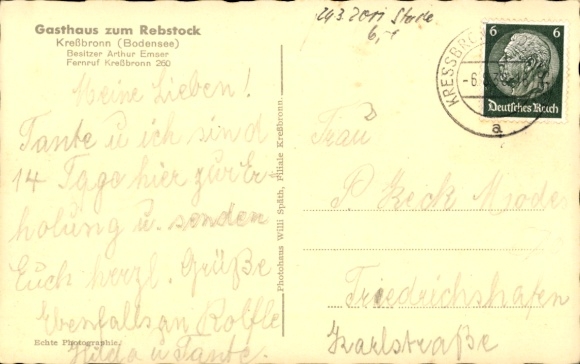 Gasthaus zum Rebstock
Kreßbronn (Bodensee)
Besitzer Arthur Emser
Fernruf Kreßbronn 260
Meine Lieben!
Tante u ich sind
14 Tage hier zur Er-
holung u. senden
Euch herzl. Grüße
Ebenfalls an Rolfle
Hilda u Tante.
Echte Photographie.
Photohaus Willi Späth, Filiale Kreßbronn.
6,-
KRESSBRO
-6.8
a
6 6
Deutsches Reich
Frau
P Keck
Friedrichshafen
Karlstraße